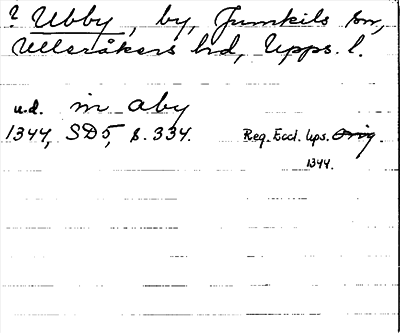 ? Ubby, by, Jumkils sn,
Ulleråkers hd, Upps. l.
u.d. in aby
1344, SD5, s. 334. Reg. Eccl. Ups. Orig.
1344.